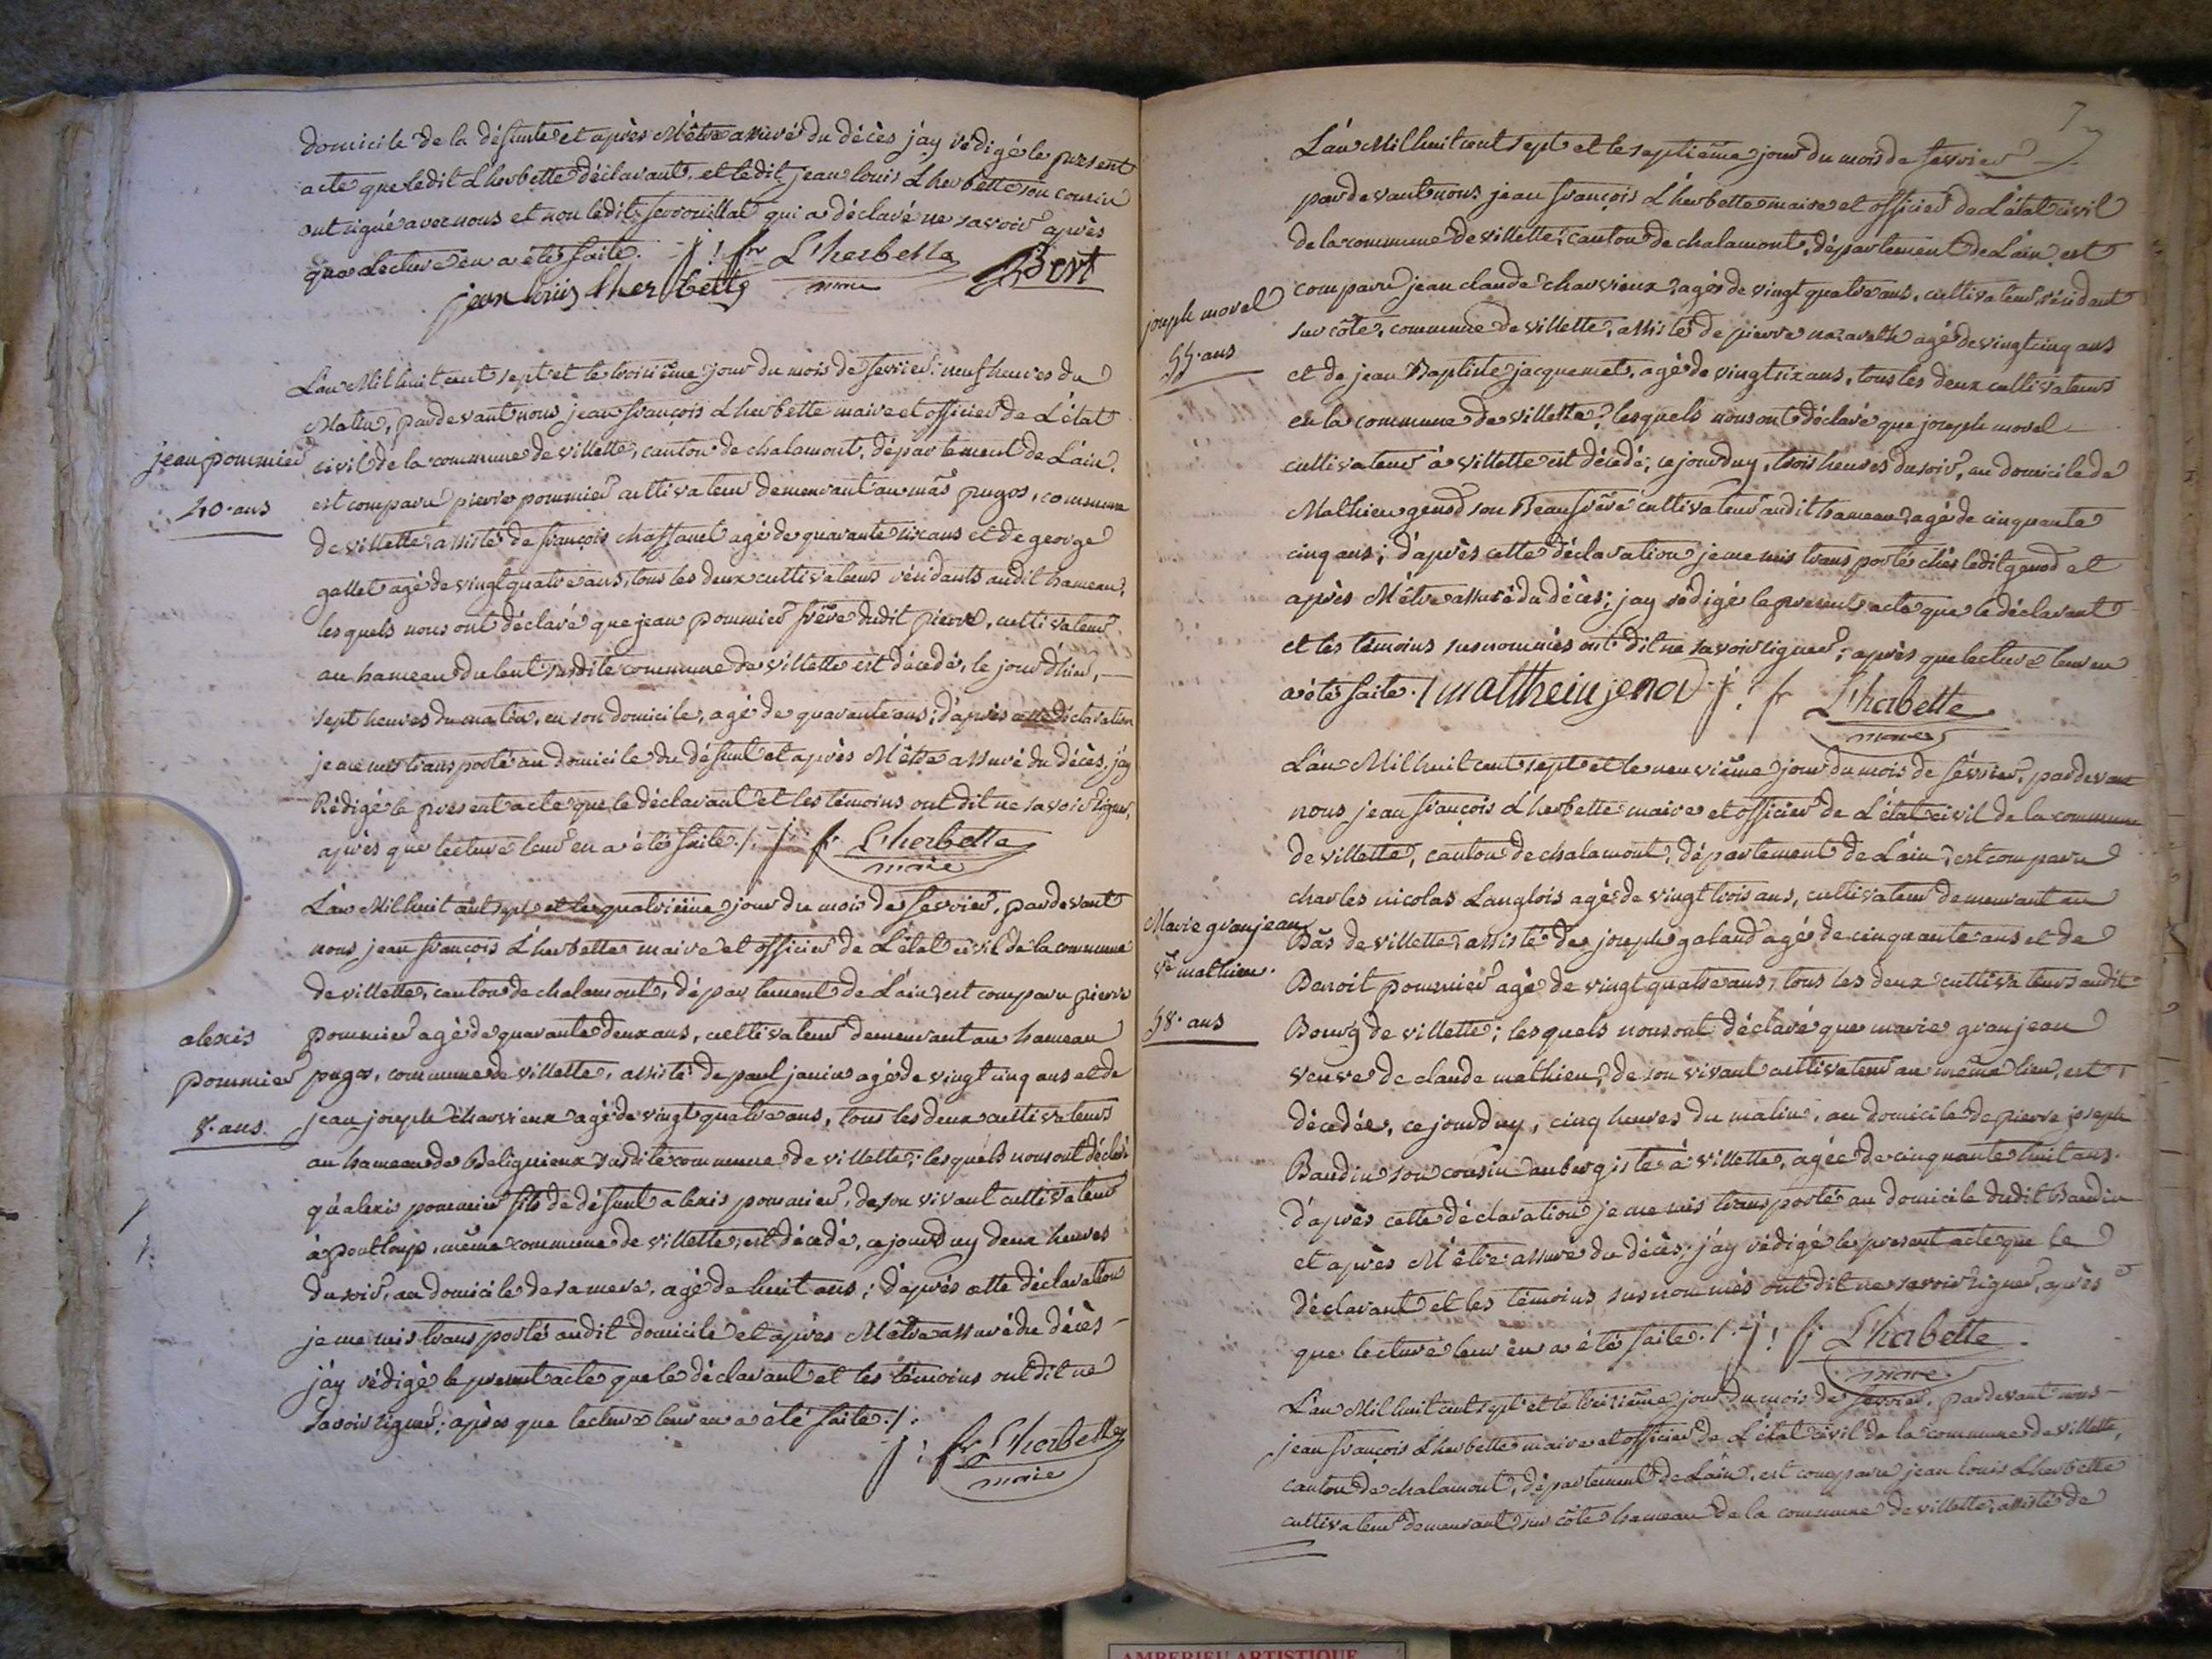 domicile de la défunte et après M'être assuré du décès j'ay rédigé le present
acte que ledit Lherbette déclarant, et ledit jean louis Lherbette son cousin
ont signé avec nous et non ledit ferrouillat qui a déclaré ne savoir après
que lecture en a été faite. j: fr Lherbette
jean louis Lherbette maire Bert
L'an Mil huit cent sept et le troisième jour du mois de fevrier: neuf heures du
Matin, pardevant nous jean françois Lherbette maire et officier de L'état
jean pommier
civil de la commune de villette, canton de chalamont, département de L'ain.
40. ans
est comparu pierre pommier cultivateur demeurant au mas pugos, commune
de villette, assisté de françois chassanel agé de quarante six ans et de george
gallet agé de vingt quatre ans, tous les deux cultivateurs résidants audit hameau,
lesquels nous ont déclaré que jean pommier frère dudit pierre, cultivateur
au hameau du lent susdite commune de villette est décédé, le jour d'hier,
sept heures du matin, en son domicile, agé de quarante ans; d'après cette déclaration
je me suis transporté au domicile du défunt et après M'être assuré du décès, j'ay
Rédigé le present acte que le déclarant et les témoins ont dit ne savoir signer,
après que lecture leur en a été faite ./. j: fr Lherbette
maire
L'an Mil huit cent sept et le quatrième jour du mois de fevrier, pardevant
nous jean françois Lherbette maire et officier de L'état civil de la commune
de villette, canton de chalamont, département de L'ain, est comparu pierre
alexis
pommier agé de quarante deux ans, cultivateur demeurant au hameau
pommier
pugos, commune de villette, assisté de paul janin agé de vingt cinq ans et de
8. ans.
jean joseph charvieux agé de vingt quatre ans, tous les deux cultivateurs
au hameau de Beliguieux susdite commune de villette; lesquels nous ont déclaré
qu'alexis pommier fils de défunt alexis pommier, de son vivant cultivateur
à pontloup, même commune de villette, est décédé, ce jourd'uy deux heures
du soir, au domicile de sa mere, agé de huit ans; d'après cette déclaration
je me suis transporté audit domicile et après M'être assuré du décès
j'ay rédigé le present acte que le déclarant et les témoins ont dit ne
savoir signer; après que lecture leur en a été faite ./.
j: fr Lherbette
maire
7
L'an Mil huit cent sept et le septième jour du mois de fevrier
pardevant nous jean françois Lherbette maire et officier de L'état civil
de la commune de villette, canton de chalamont, département de L'ain, est
comparu jean claude charvieux, agé de vingt quatre ans, cultivateur, résidant
joseph morel
sur côte, commune de villette, assisté de pierre nazareth agé de vingt cinq ans
55. ans
et de jean Baptiste jacquemet, agé de vingt six ans, tous les deux cultivateurs
en la commune de villette, lesquels nous ont déclaré que joseph morel
cultivateur à villette est décédé, ce jourd'uy, trois heures du soir, au domicile de
Mathieu genod son Beaufrère cultivateur audit hameau, agé de cinquante
cinq ans; d'après cette déclaration je me suis transporté chés ledit genod et
après M'être assuré du décès; j'ay rédigé le present acte que le déclarant
et les témoins susnommés ont dit ne savoir signer; après que lecture leur en
a été faite ./ matthein jenod j: fr Lherbette
maire
L'an Mil huit cent sept et le neuvième jour du mois de fevrier, pardevant
nous jean françois Lherbette maire et officier de L'état civil de la commune
de villette, canton de chalamont, département de L'ain, est comparu
charles nicolas Langlois agé de vingt trois ans, cultivateur demeurant au
Marie granjean
Bas de villette, assisté de joseph galand agé de cinquante ans et de
ve mathieu.
Benoit pommier agé de vingt quatre ans, tous les deux cultivateurs audit
58. ans
Bourg de villette; lesquels nous ont déclaré que marie granjean
veuve de claude mathieu, de son vivant cultivateur au même lieu, est
décedée, ce jourd'uy, cinq heures du matin, au domicile de pierre joseph
Baudin son cousin aubergiste à villette, agée de cinquante huit ans.
d'après cette déclaration je me suis transporté au domicile dudit Baudin
et après M'être assuré du décès; j'ay rédigé le present acte que le
déclarant et les témoins susnommés ont dit ne savoir signer, après
que lecture leur en a été faite ./. j: fr Lherbette
maire
L'an Mil huit cent sept et le treizième jour du mois de fevrier, pardevant nous
jean françois Lherbette maire et officier de L'état civil de la commune de villette,
canton de chalamont, département de L'ain, est comparu jean louis Lherbette
cultivateur demeurant sur côte hameau de la commune de villette, assisté de
AMBERIEU ARTISTIQUE